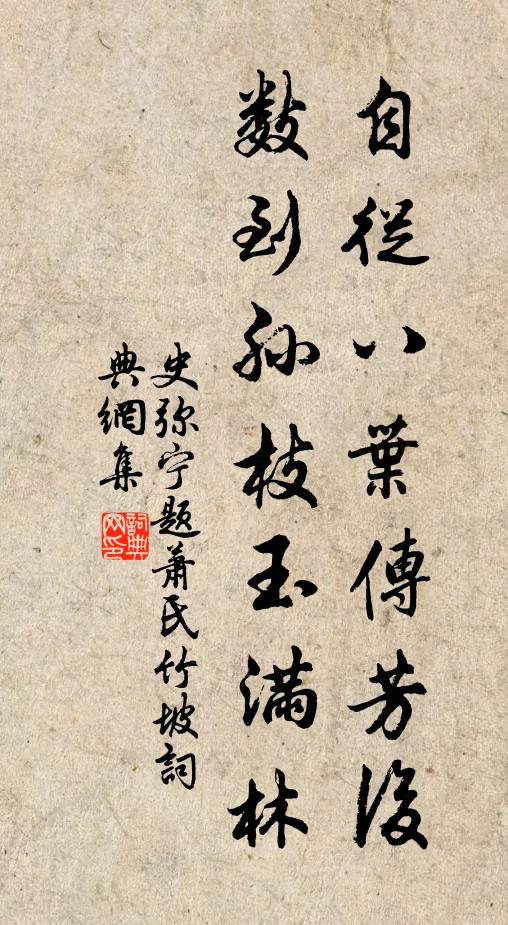 自從八葉傳芳後
数到孙枝玉满林
史弥宁题萧氏竹坡詞
典網集
詞典网印